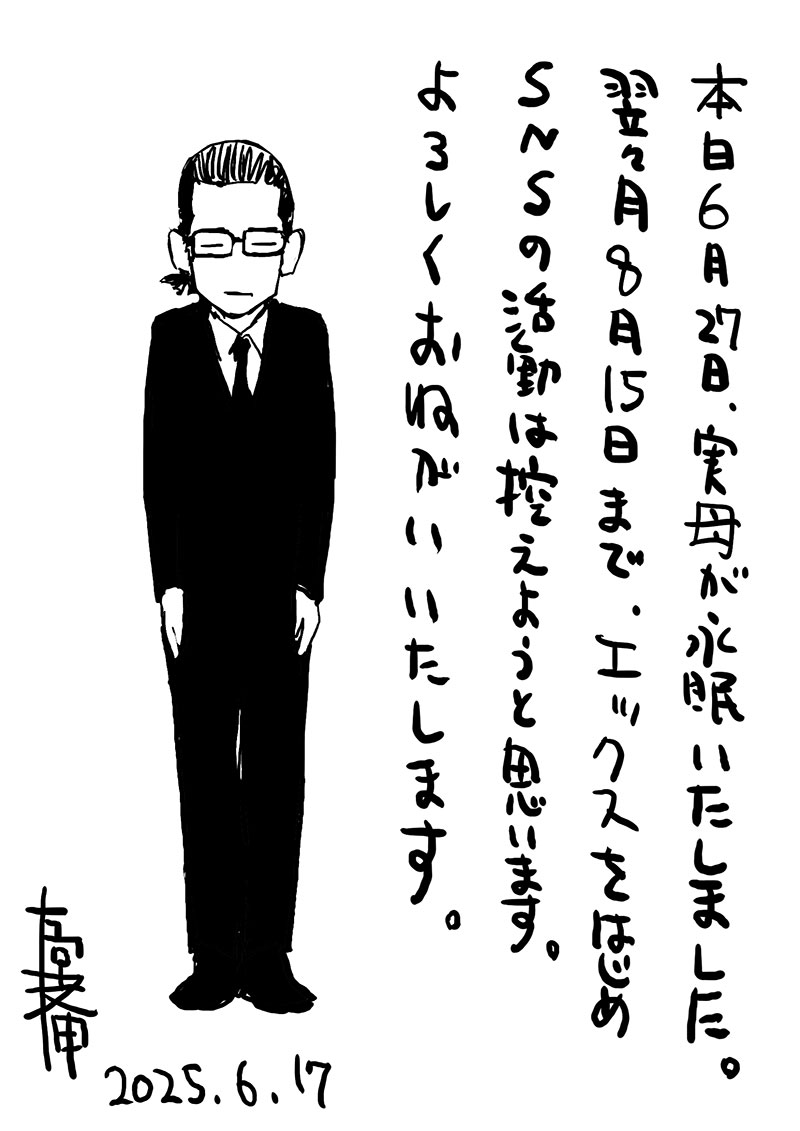 本日6月27日、実母が永眠いたしました。
翌々月8月15日まで、エックスをはじめ
SNSの活動は控えようと思います。
よろしくおねがいいたします。
2025.6.17